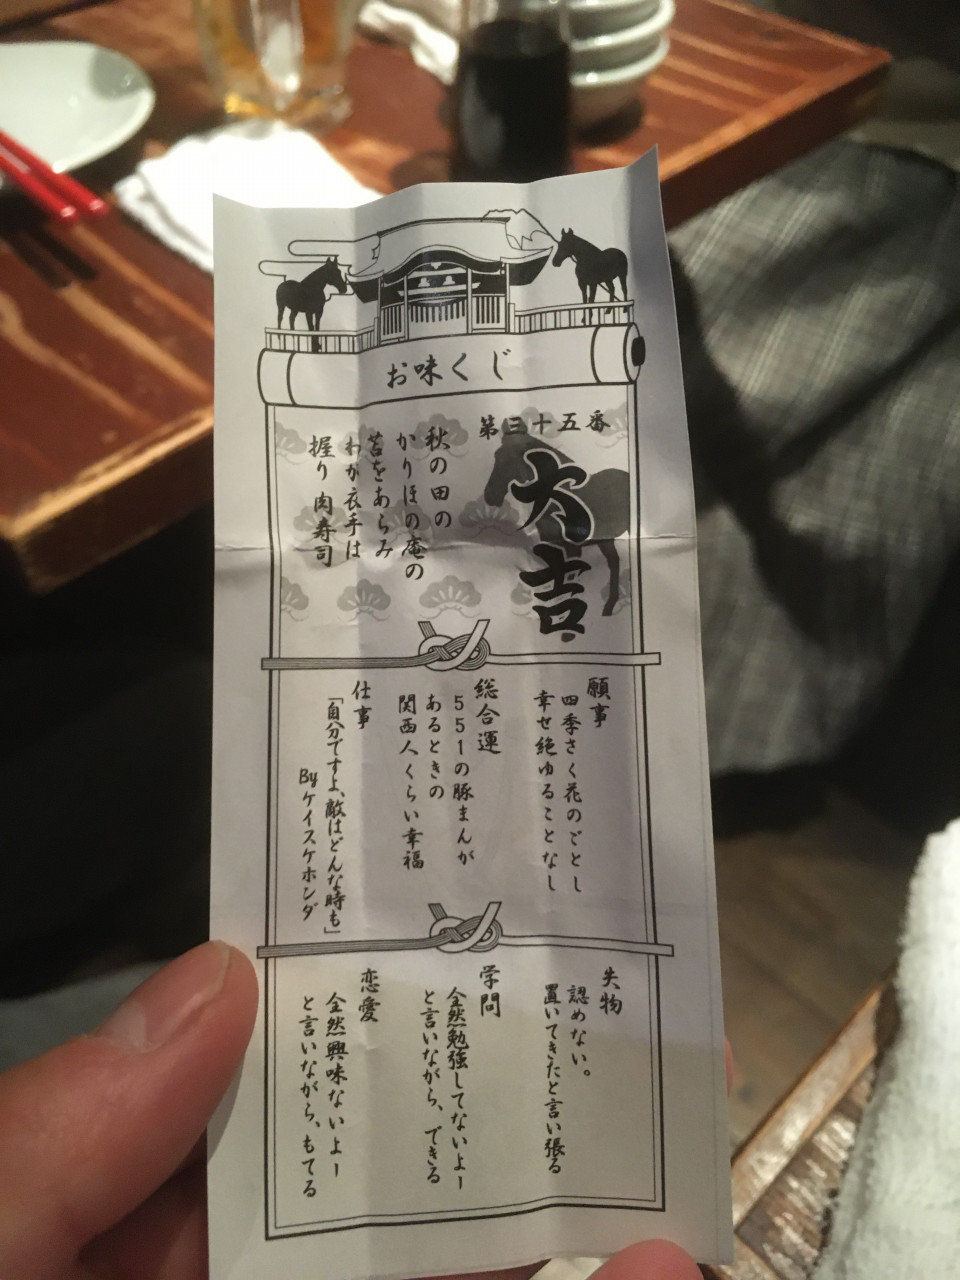 お味くじ
第三十五番
大吉
秋の田の
かりほの庵の
苫をあらみ
わが衣手は
握り肉寿司
願事
四季さく花のごとし
幸せ絶ゆることなし
総合運
５５１の豚まんが
あるときの
関西人くらい幸福
仕事
「自分ですよ、敵はどんな時も」
Byケイスケホンダ
失物
認めない。
置いてきたと言い張る
学問
全然勉強してないよー
と言いながら、できる
恋愛
全然興味ないよー
と言いながら、もてる